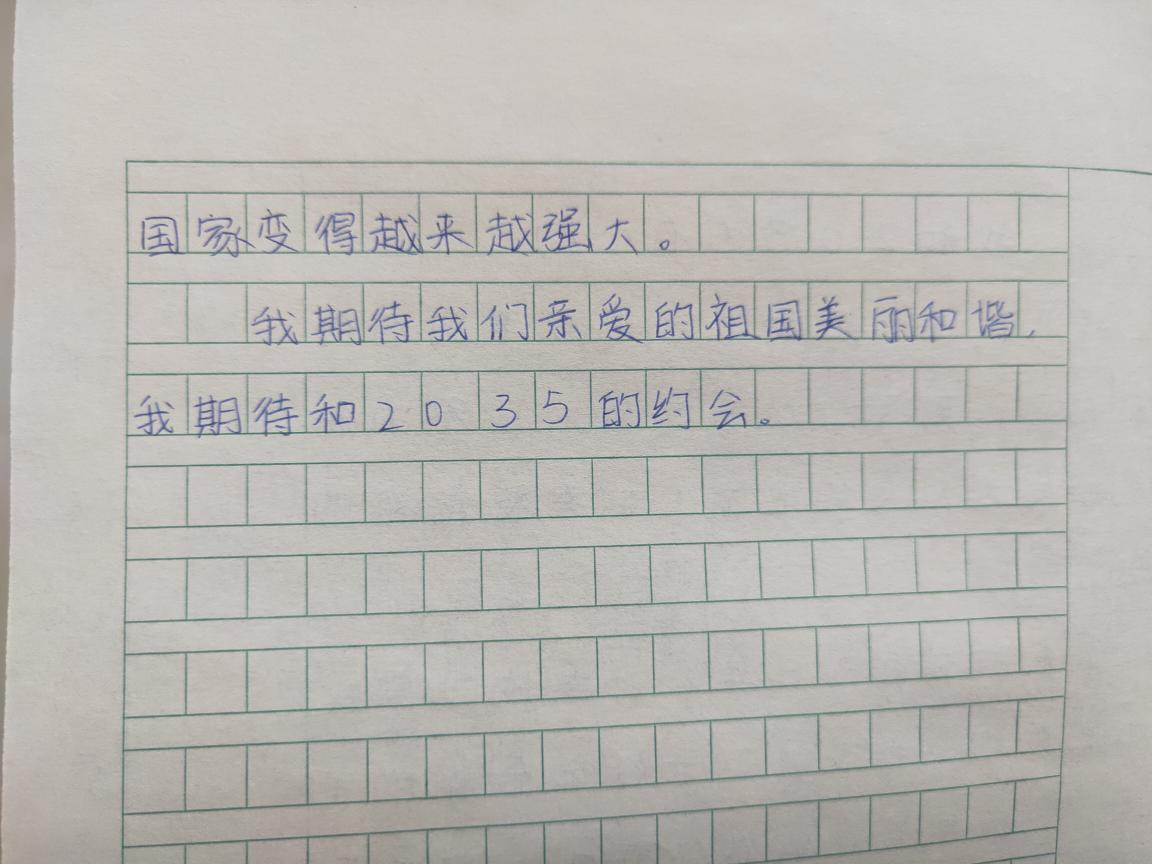 国家变得越来越强大。
我期待我们亲爱的祖国美丽和谐，
我期待和2035的约会。